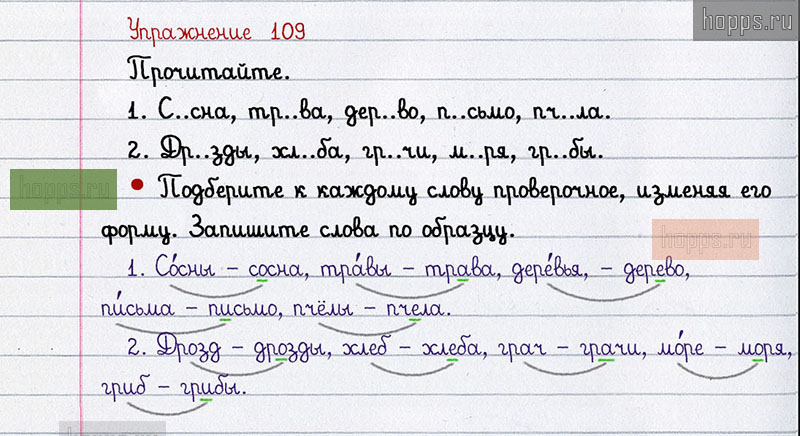 hopps.ru
Упражнение 109
Прочитайте.
1. С..сна, тр..ва, дер..во, п..сьмо, пч..ла.
2. Др..зды, хл..ба, гр..чи, м..ря, гр..бы.
hopps.ru
• Подберите к каждому слову проверочное, изменяя его
форму. Запишите слова по образцу.
hopps.ru
1. Со́сны – сосна, тра́вы – трава, дере́вья, – дерево,
пи́сьма – письмо, пчёлы – пчела.
2. Дрозд – дрозды, хлеб – хлеба, грач – грачи, мо́ре – моря,
гриб – грибы.
hopps.ru